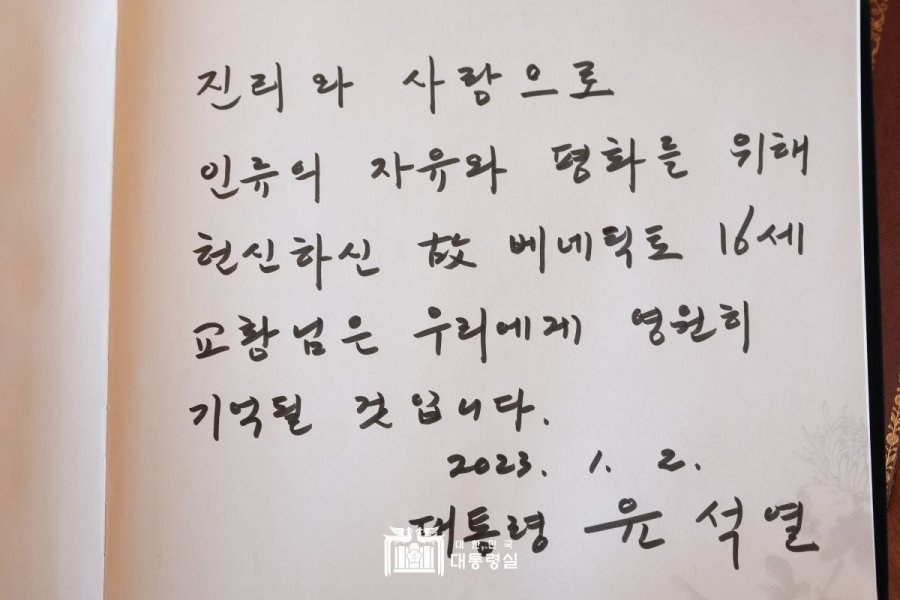 진리와 사랑으로
인류의 자유와 평화를 위해
헌신하신 故 베네딕토 16세
교황님은 우리에게 영원히
기억될 것입니다.
2023. 1. 2.
대통령 윤석열
대한민국
대통령실